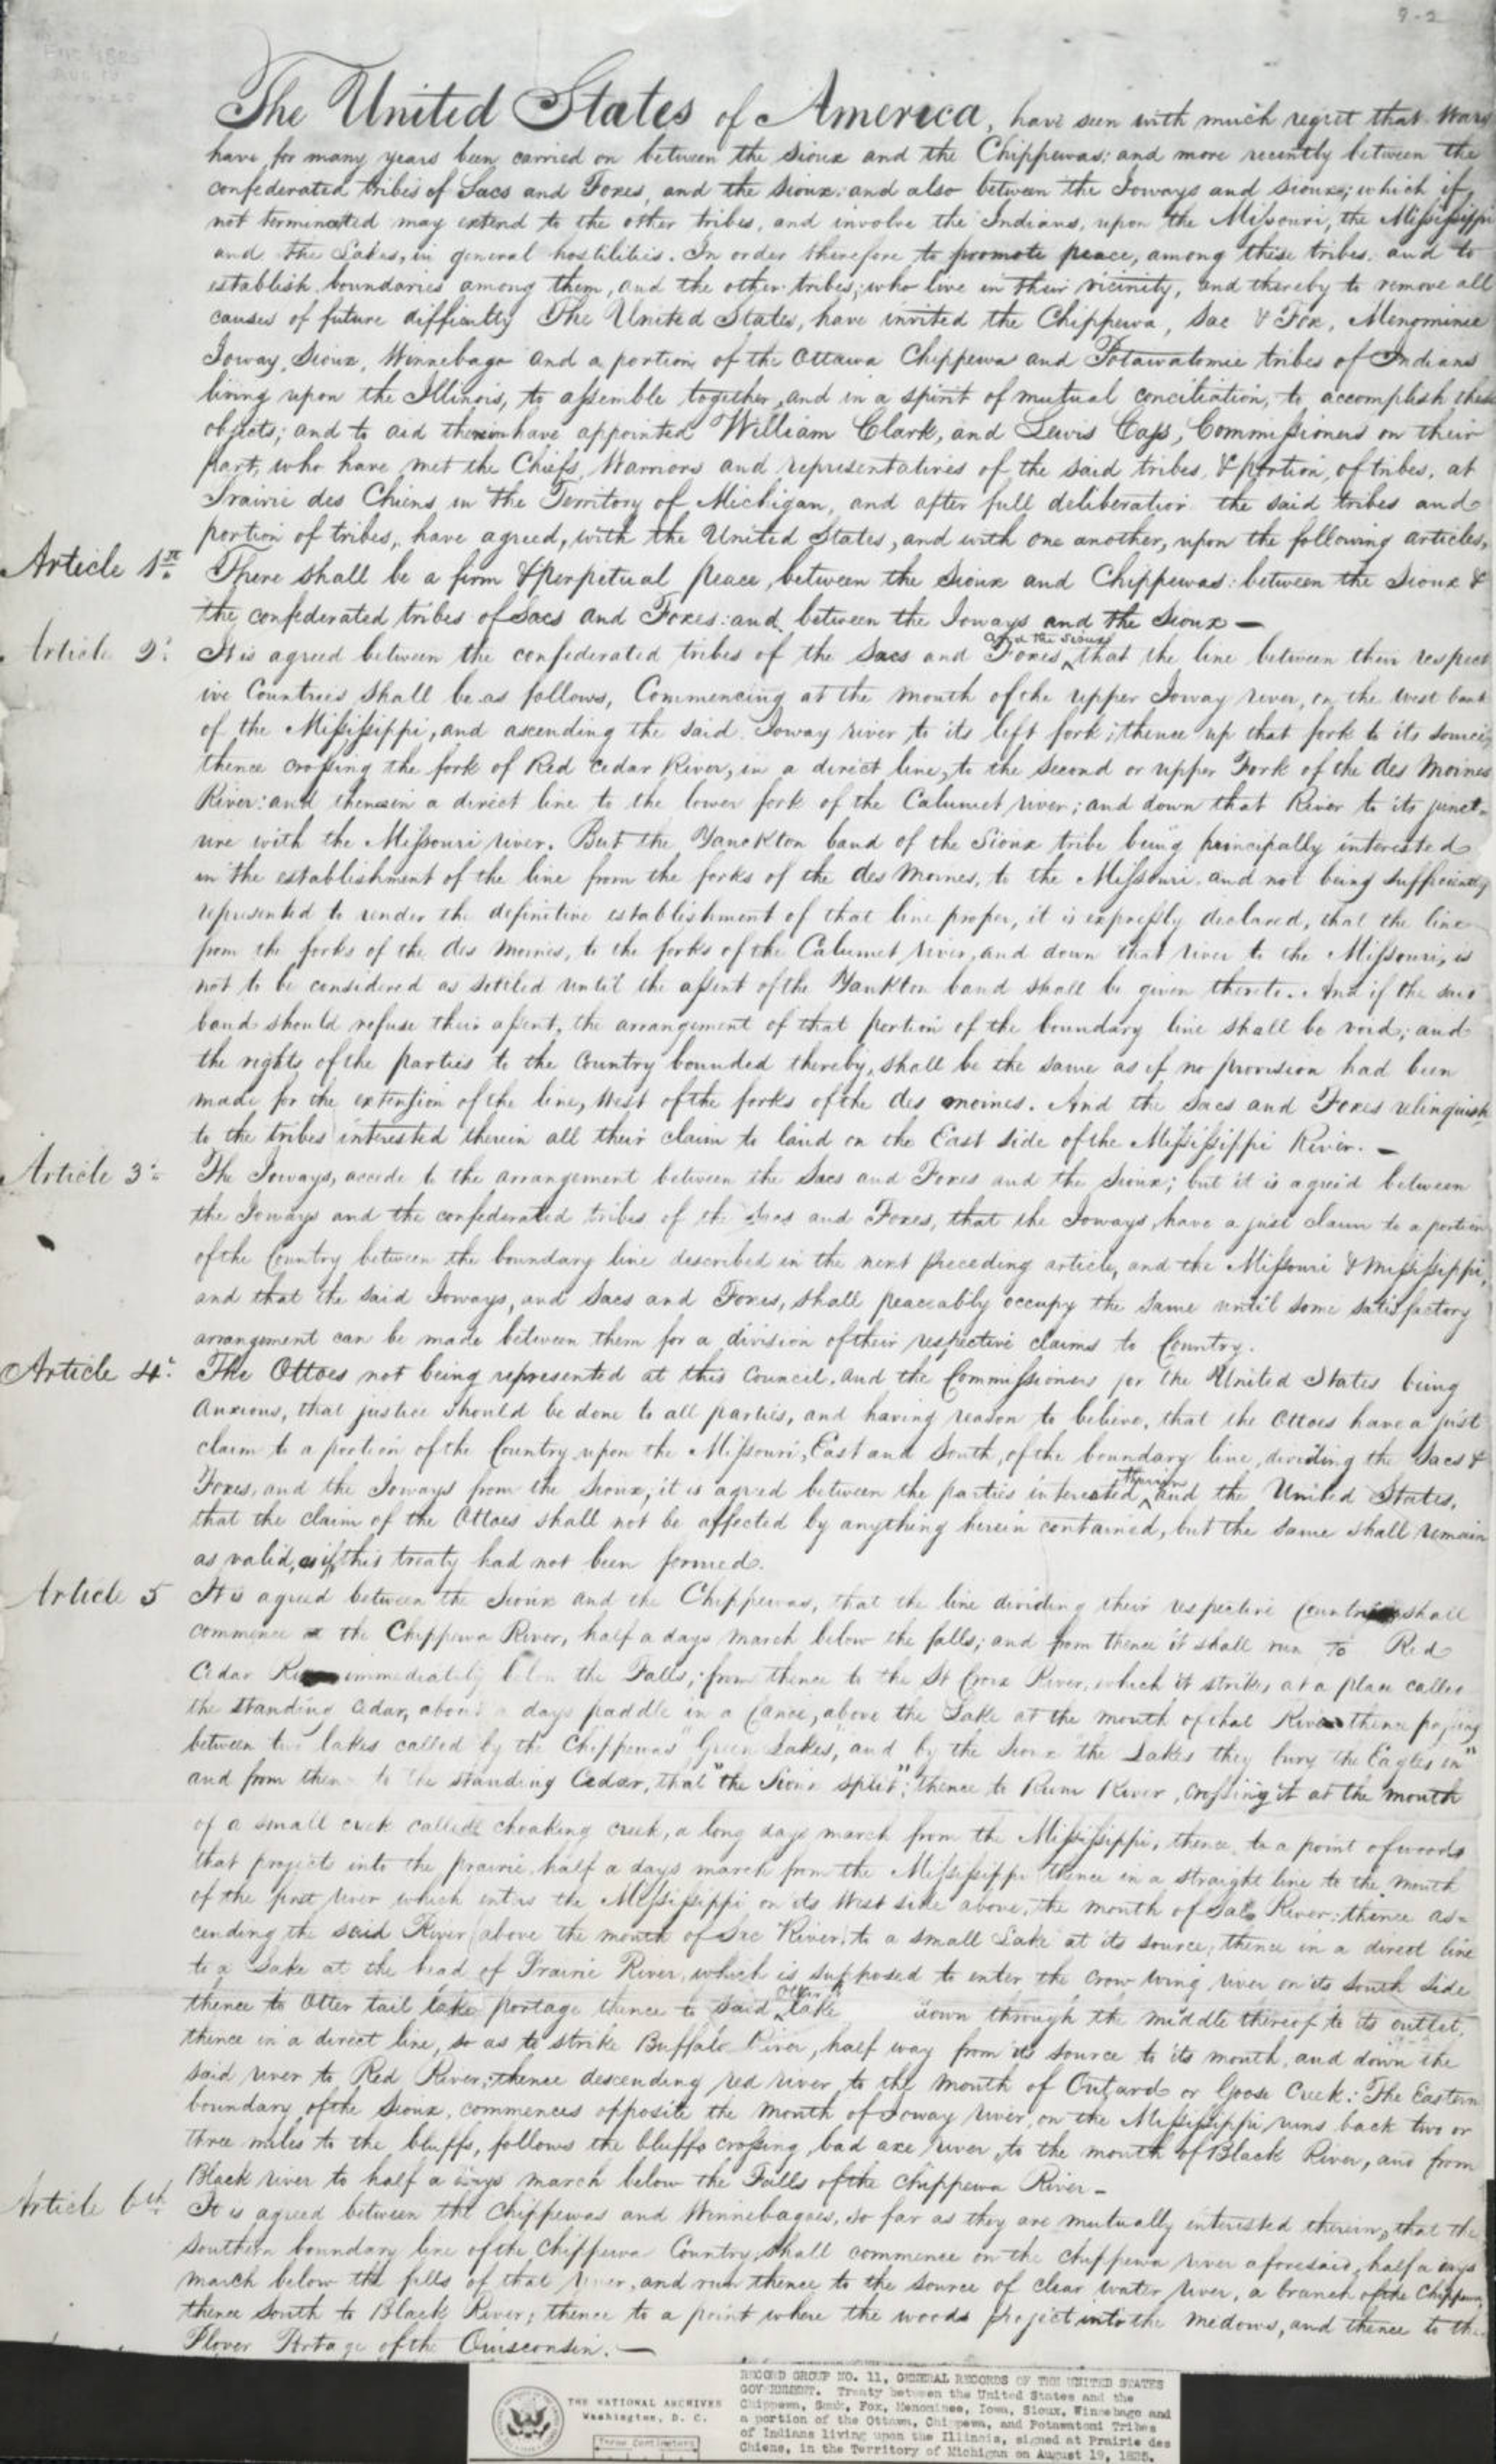 9-2
The United States of America, have seen with much regret that Wars
have for many years been carried on between the Sioux and the Chippewas; and more recently between the
confederated tribes of Sacs and Foxes, and the Sioux: and also between the Ioways and Sioux; which if,
not terminated may extend to the other tribes, and involve the Indians, upon the Missouri, the Mississippi
and the Lakes, in general hostilities. In order therefore to promote peace, among these tribes, and to
establish boundaries among them, and the other tribes, who live in their vicinity, and thereby to remove all
causes of future difficulty The United States, have invited the Chippewa, Sac & Fox, Menominie
Ioway, Sioux, Winnebago and a portion of the Ottawa Chippewa and Potawatomie tribes of Indians
living upon the Illinois, to assemble together, and in a spirit of mutual conciliation, to accomplish these
objects; and to aid therein have appointed William Clark, and Lewis Cass, Commissioners on their
part, who have met the Chiefs, Warriors and representatives of the said tribes, & portion, of tribes, at
Prairie des Chiens in the Territory of Michigan, and after full deliberation the said tribes and
portion of tribes, have agreed, with the United States, and with one another, upon the following articles,
Article 1st There shall be a firm & perpetual peace, between the Sioux and Chippewas: between the Sioux &
the confederated tribes of Sacs and Foxes: and between the Ioways and the Sioux —
Article 2d It is agreed between the confederated tribes of the Sacs and Foxes, and the Sioux that the line between their respect
ive Countries shall be as follows, Commencing at the mouth of the upper Ioway river, on the west bank
of the Mississippi, and ascending the said Ioway river, to its left fork; thence up that fork to its source;
thence crossing the fork of Red Cedar River, in a direct line, to the second or upper Fork of the des Moines
River: and thence in a direct line to the lower fork of the Calumet river; and down that River to its junct-
ure with the Missouri river. But the Yanckton band of the Sioux tribe being principally interested
in the establishment of the line from the forks of the des Moines, to the Missouri, and not being sufficiently
represented to render the definitive establishment of that line proper, it is expressly declared, that the line
from the forks of the des Moines, to the forks of the Calumet river, and down that river to the Missouri, is
not to be considered as settled until the assent of the Yankton band shall be given thereto. And if the said
band should refuse their assent, the arrangement of that portion of the boundary line shall be void; and
the rights of the parties to the Country bounded thereby, shall be the same as if no provision had been
made for the extension of the line, West of the forks of the des moines. And the Sacs and Foxes relinquish
to the tribes interested therein all their claim to land on the East side of the Mississippi River. —
Article 3d The Ioways, accede to the arrangement between the Sacs and Foxes and the Sioux; but it is agreed between
the Ioways and the confederated tribes of the Sacs and Foxes, that the Ioways, have a just claim to a portion
of the Country between the boundary line described in the next preceding article, and the Missouri & Mississippi;
and that the said Ioways, and Sacs and Foxes, shall peaceably occupy the same until some satisfactory
arrangement can be made between them for a division of their respective claims to Country.
Article 4t The Ottoes not being represented at this Council, and the Commissioners for the United States being
anxious, that justice should be done to all parties, and having reason to believe, that the Ottoes have a just
claim to a portion of the Country upon the Missouri, East and South, of the boundary line, dividing the Sacs &
Foxes, and the Ioways from the Sioux, it is agreed between the parties interested therein and the United States,
that the claim of the Ottoes shall not be affected by anything herein contained, but the same shall remain
as valid, as if this treaty had not been formed.
Article 5 It is agreed between the Sioux and the Chippewas, that the line dividing their respective Countries shall
commence at the Chippewa River, half a days march below the falls; and from thence it shall run To Red
Cedar River immediately below the Falls; from thence to the St Croix River, which it strikes at a place called
the standing cedar, about a days paddle in a Canoe, above the Lake at the mouth of that River thence passing
between two lakes called by the Chippewas "Green Lakes," and by the Sioux "the Lakes they bury the Eagles in"
and from thence to the standing Cedar, that "the Sioux split"; thence to Rum River, crossing it at the mouth
of a small creek called choaking creek, a long days march from the Mississippi, thence to a point of woods
that projects into the prairie half a days march from the Mississippi thence in a straight line to the mouth
of the first river which enters the Mississippi on its West side above, the mouth of Sac River: thence as-
cending the said River (above the mouth of Sac River) to a small Lake at its source; thence in a direct line
to a Lake at the head of Prairie River, which is supposed to enter the Crow wing river on its South Side
thence to Otter tail lake portage thence to said Otter tail lake down through the middle thereof to its outlet;
thence in a direct line, so as to strike Buffalo River, half way from its source to its mouth, and down the
said river to Red River; thence descending red river to the mouth of Outard or Goose Creek: The Eastern
boundary of the Sioux, commences opposite the mouth of Ioway river, on the Mississippi runs back two or
three miles to the bluffs, follows the bluffs crossing bad axe river, to the mouth of Black River, and from
Black river to half a days march below the Falls of the Chippewa River —
Article 6th It is agreed between the Chippewas and Winnebagoes, so far as they are mutually interested therein, that the
Southern boundary line of the Chippewa Country, shall commence on the Chippewa river aforesaid, half a days
march below the falls of that river, and run thence to the source of clear water river, a branch of the Chippewa;
thence South to Black River; thence to a point where the woods project into the medows, and thence to the
Plover Portage of the Ouisconsin. —
THE NATIONAL ARCHIVES
Washington, D. C.
RECORD GROUP NO. 11, GENERAL RECORDS OF THE UNITED STATES
GOVERNMENT. Treaty between the United States and the
Chippewa, Sauk, Fox, Menominee, Iowa, Sioux, Winnebago and
a portion of the Ottawa, Chippewa, and Potawatomi Tribes
of Indians living upon the Illinois, signed at Prairie des
Chiens, in the Territory of Michigan on August 19, 1825.